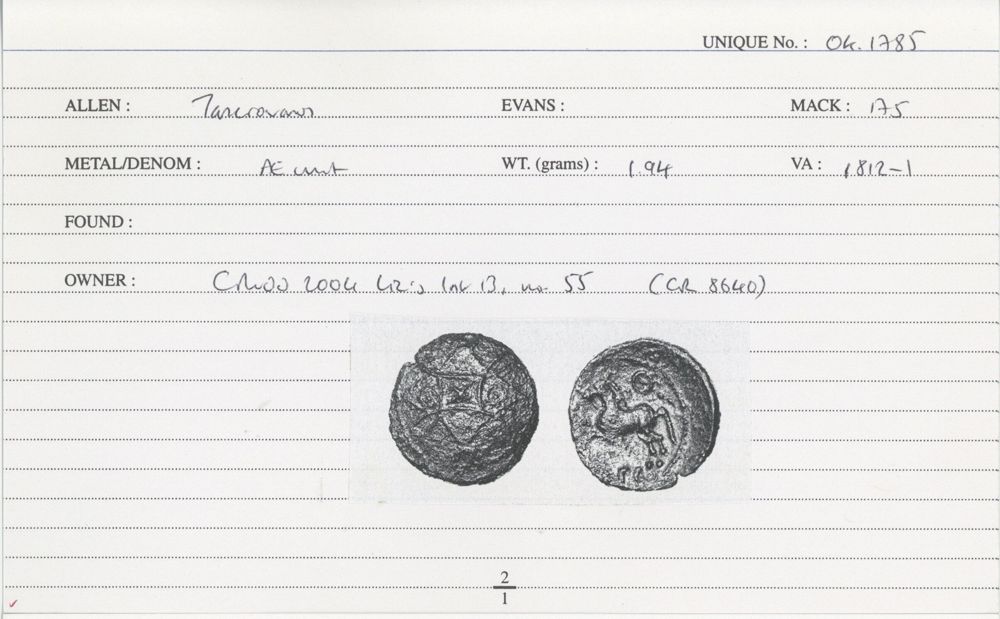 UNIQUE No. : 04.1785
ALLEN : Tasciovanus EVANS : MACK : 175
METAL/DENOM : Æ unit WT. (grams) : 1.94 VA : 1812-1
FOUND :
OWNER : 2004 13, no. 55 (CR 8640)
2
1